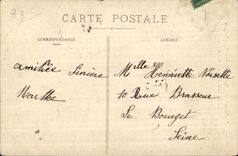 93
CARTE POSTALE
CORRESPONDANCE
ADRESSE
amitiée Sincère
Marthe
Mlle Henriette Nisette
10 Rue Brasseur
Le Bourget
Seine